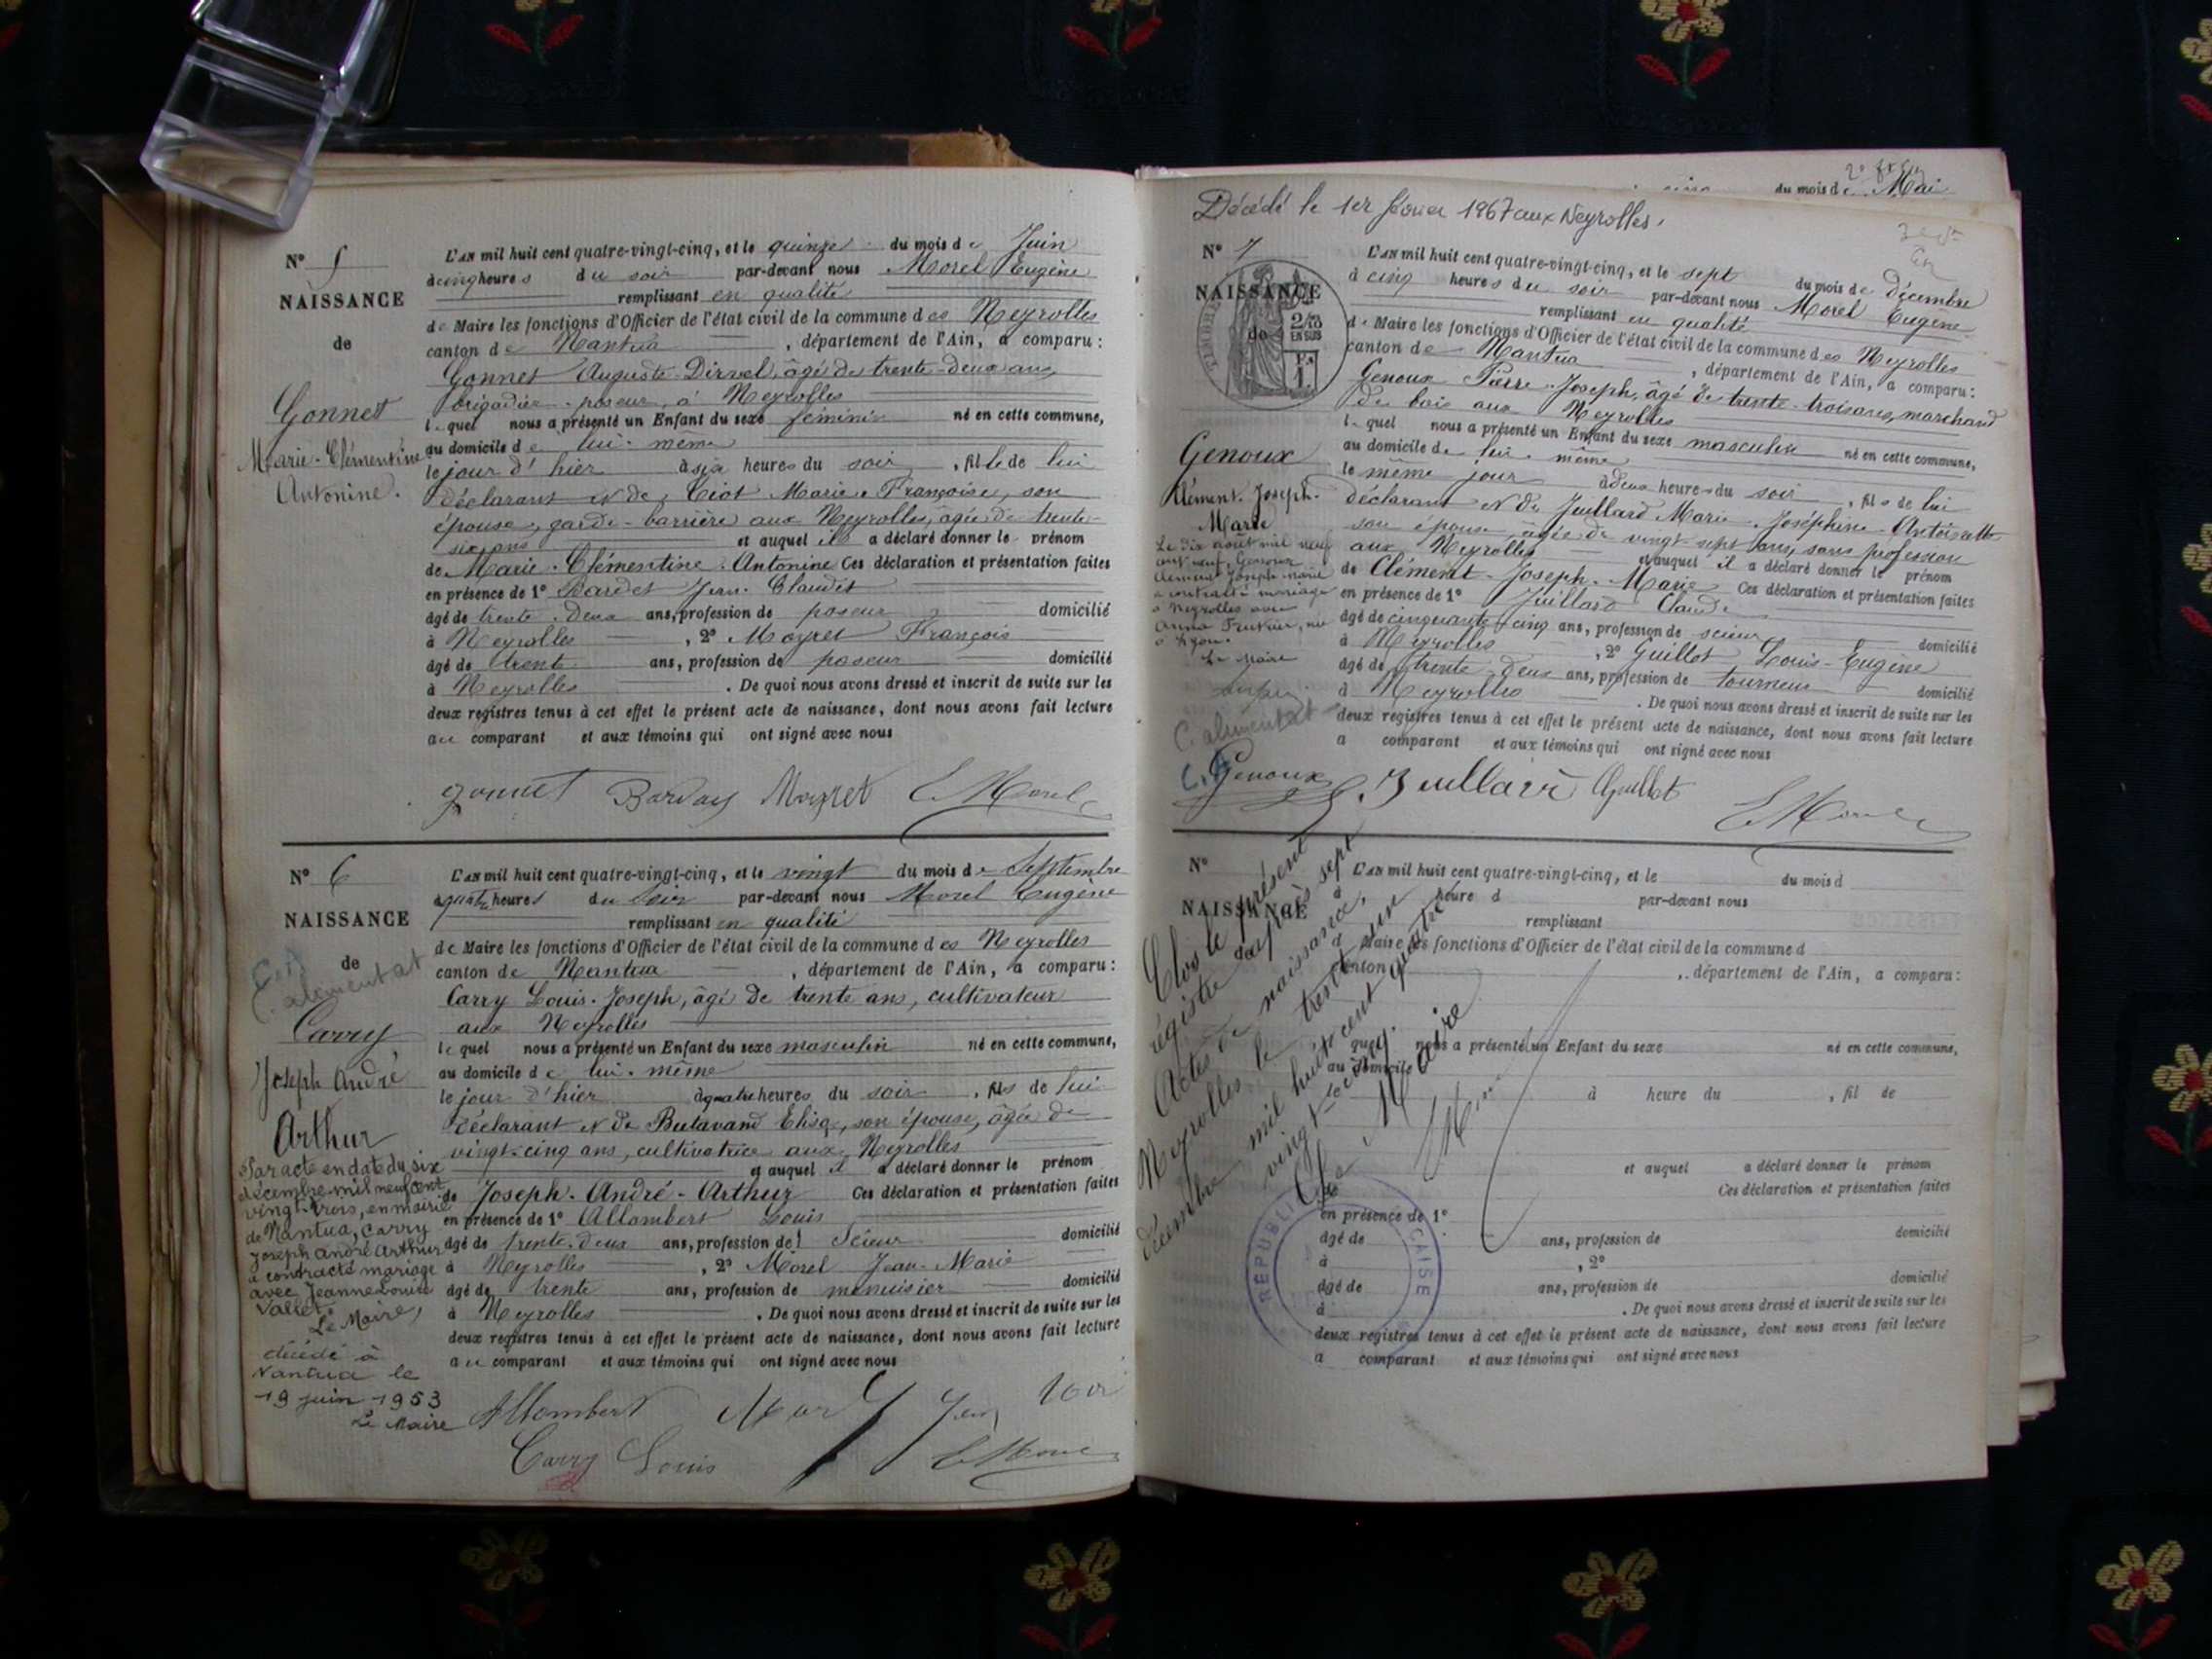 N° 5
NAISSANCE
de
Gonnet
Marie-Clémentine
Antonine.
L'AN mil huit cent quatre-vingt-cinq, et le quinze du mois de Juin
à cinq heures du soir par-devant nous Morel Eugène
remplissant en qualité
de Maire les fonctions d'Officier de l'état civil de la commune des Neyrolles
canton de Nantua, département de l'Ain, a comparu:
Gonnet Auguste, âgé de trente-deux ans,
brigadier-poseur, à Neyrolles
lequel nous a présenté un Enfant du sexe féminin né en cette commune,
au domicile de lui-même
le jour d'hier à six heures du soir, fille de lui
déclarant et de Ciot Marie-Françoise, son
épouse, garde-barrière aux Neyrolles, âgée de trente-
six ans et auquel il a déclaré donner le prénom
de Marie-Clémentine-Antonine Ces déclaration et présentation faites
en présence de 1° Jean-Claudit
âgé de trente-deux ans, profession de poseur domicilié
à Neyrolles, 2° Mayret François
âgé de trente ans, profession de poseur domicilié
à Neyrolles. De quoi nous avons dressé et inscrit de suite sur les
deux registres tenus à cet effet le présent acte de naissance, dont nous avons fait lecture
au comparant et aux témoins qui ont signé avec nous
gonnet Mayret E Morel
N° 6
NAISSANCE
de
C. alimentat
Carry
Joseph André
Arthur
Par acte en date du six
décembre mil neuf cent
vingt-trois, en mairie
de Nantua, Carry
Joseph André Arthur
a contracté mariage
avec Jeanne Louise
Vallet.
Le Maire,
décédé à
Nantua le
19 juin 1953
Le Maire
L'AN mil huit cent quatre-vingt-cinq, et le vingt du mois de Septembre
à quatre heures du soir par-devant nous Morel Eugène
remplissant en qualité
de Maire les fonctions d'Officier de l'état civil de la commune des Neyrolles
canton de Nantua, département de l'Ain, a comparu:
Carry Louis-Joseph, âgé de trente ans, cultivateur
aux Neyrolles
lequel nous a présenté un Enfant du sexe masculin né en cette commune,
au domicile de lui-même
le jour d'hier à quatre heures du soir, fils de lui
déclarant et de Butavand Elisa, son épouse, âgée de
vingt-cinq ans, cultivatrice aux Neyrolles
et auquel il a déclaré donner le prénom
de Joseph-André-Arthur Ces déclaration et présentation faites
en présence de 1° Allombert Louis
âgé de trente-deux ans, profession de scieur domicilié
à Neyrolles, 2° Morel Jean-Marie
âgé de trente ans, profession de menuisier domicilié
à Neyrolles. De quoi nous avons dressé et inscrit de suite sur les
deux registres tenus à cet effet le présent acte de naissance, dont nous avons fait lecture
au comparant et aux témoins qui ont signé avec nous
Allombert
Carry Louis E Morel
du mois de Mai
Décédé le 1er février 1967 aux Neyrolles.
N° 7
NAISSANCE
de
2/10 EN SUS
Genoux
Clément-Joseph-
Marie
Le dix août mil neuf
cent neuf, Genoux
Clément Joseph Marie
a contracté mariage
à Neyrolles avec
Le Maire
C. alimentat
L'AN mil huit cent quatre-vingt-cinq, et le sept du mois de décembre
à cinq heures du soir par-devant nous Morel Eugène
remplissant en qualité
de Maire les fonctions d'Officier de l'état civil de la commune des Neyrolles
canton de Nantua, département de l'Ain, a comparu:
Genoux Pierre-Joseph, âgé de trente-trois ans, marchand
de bois aux Neyrolles
lequel nous a présenté un Enfant du sexe masculin né en cette commune,
au domicile de lui-même
le même jour à deux heures du soir, fils de lui
déclarant et de Juillard Marie-Joséphine-Antoinette
son épouse, âgée de vingt-sept ans, sans profession
aux Neyrolles et auquel il a déclaré donner le prénom
de Clément-Joseph-Marie Ces déclaration et présentation faites
en présence de 1° Juillard Claude
âgé de cinquante-cinq ans, profession de scieur domicilié
à Neyrolles, 2° Guillot Louis-Eugène
âgé de trente-deux ans, profession de tourneur domicilié
à Neyrolles. De quoi nous avons dressé et inscrit de suite sur les
deux registres tenus à cet effet le présent acte de naissance, dont nous avons fait lecture
a comparant et aux témoins qui ont signé avec nous
Genoux Juillard Guillot
E Morel
N°
NAISSANCE
L'AN mil huit cent quatre-vingt-cinq, et le du mois d
à heure d par-devant nous
remplissant
d Maire les fonctions d'Officier de l'état civil de la commune d
canton, département de l'Ain, a comparu:
quel nous a présenté un Enfant du sexe né en cette commune,
au domicile
le à heure du, fil de
et auquel a déclaré donner le prénom
de Ces déclaration et présentation faites
en présence de 1°
âgé de ans, profession de domicilié
à, 2°
âgé de ans, profession de domicilié
à. De quoi nous avons dressé et inscrit de suite sur les
deux registres tenus à cet effet le présent acte de naissance, dont nous avons fait lecture
a comparant et aux témoins qui ont signé avec nous
Clos le présent
régistre après sept
Actes de naissance,
Neyrolles le trente-un
décembre mil huit cent quatre
vingt-cinq.
Le Maire